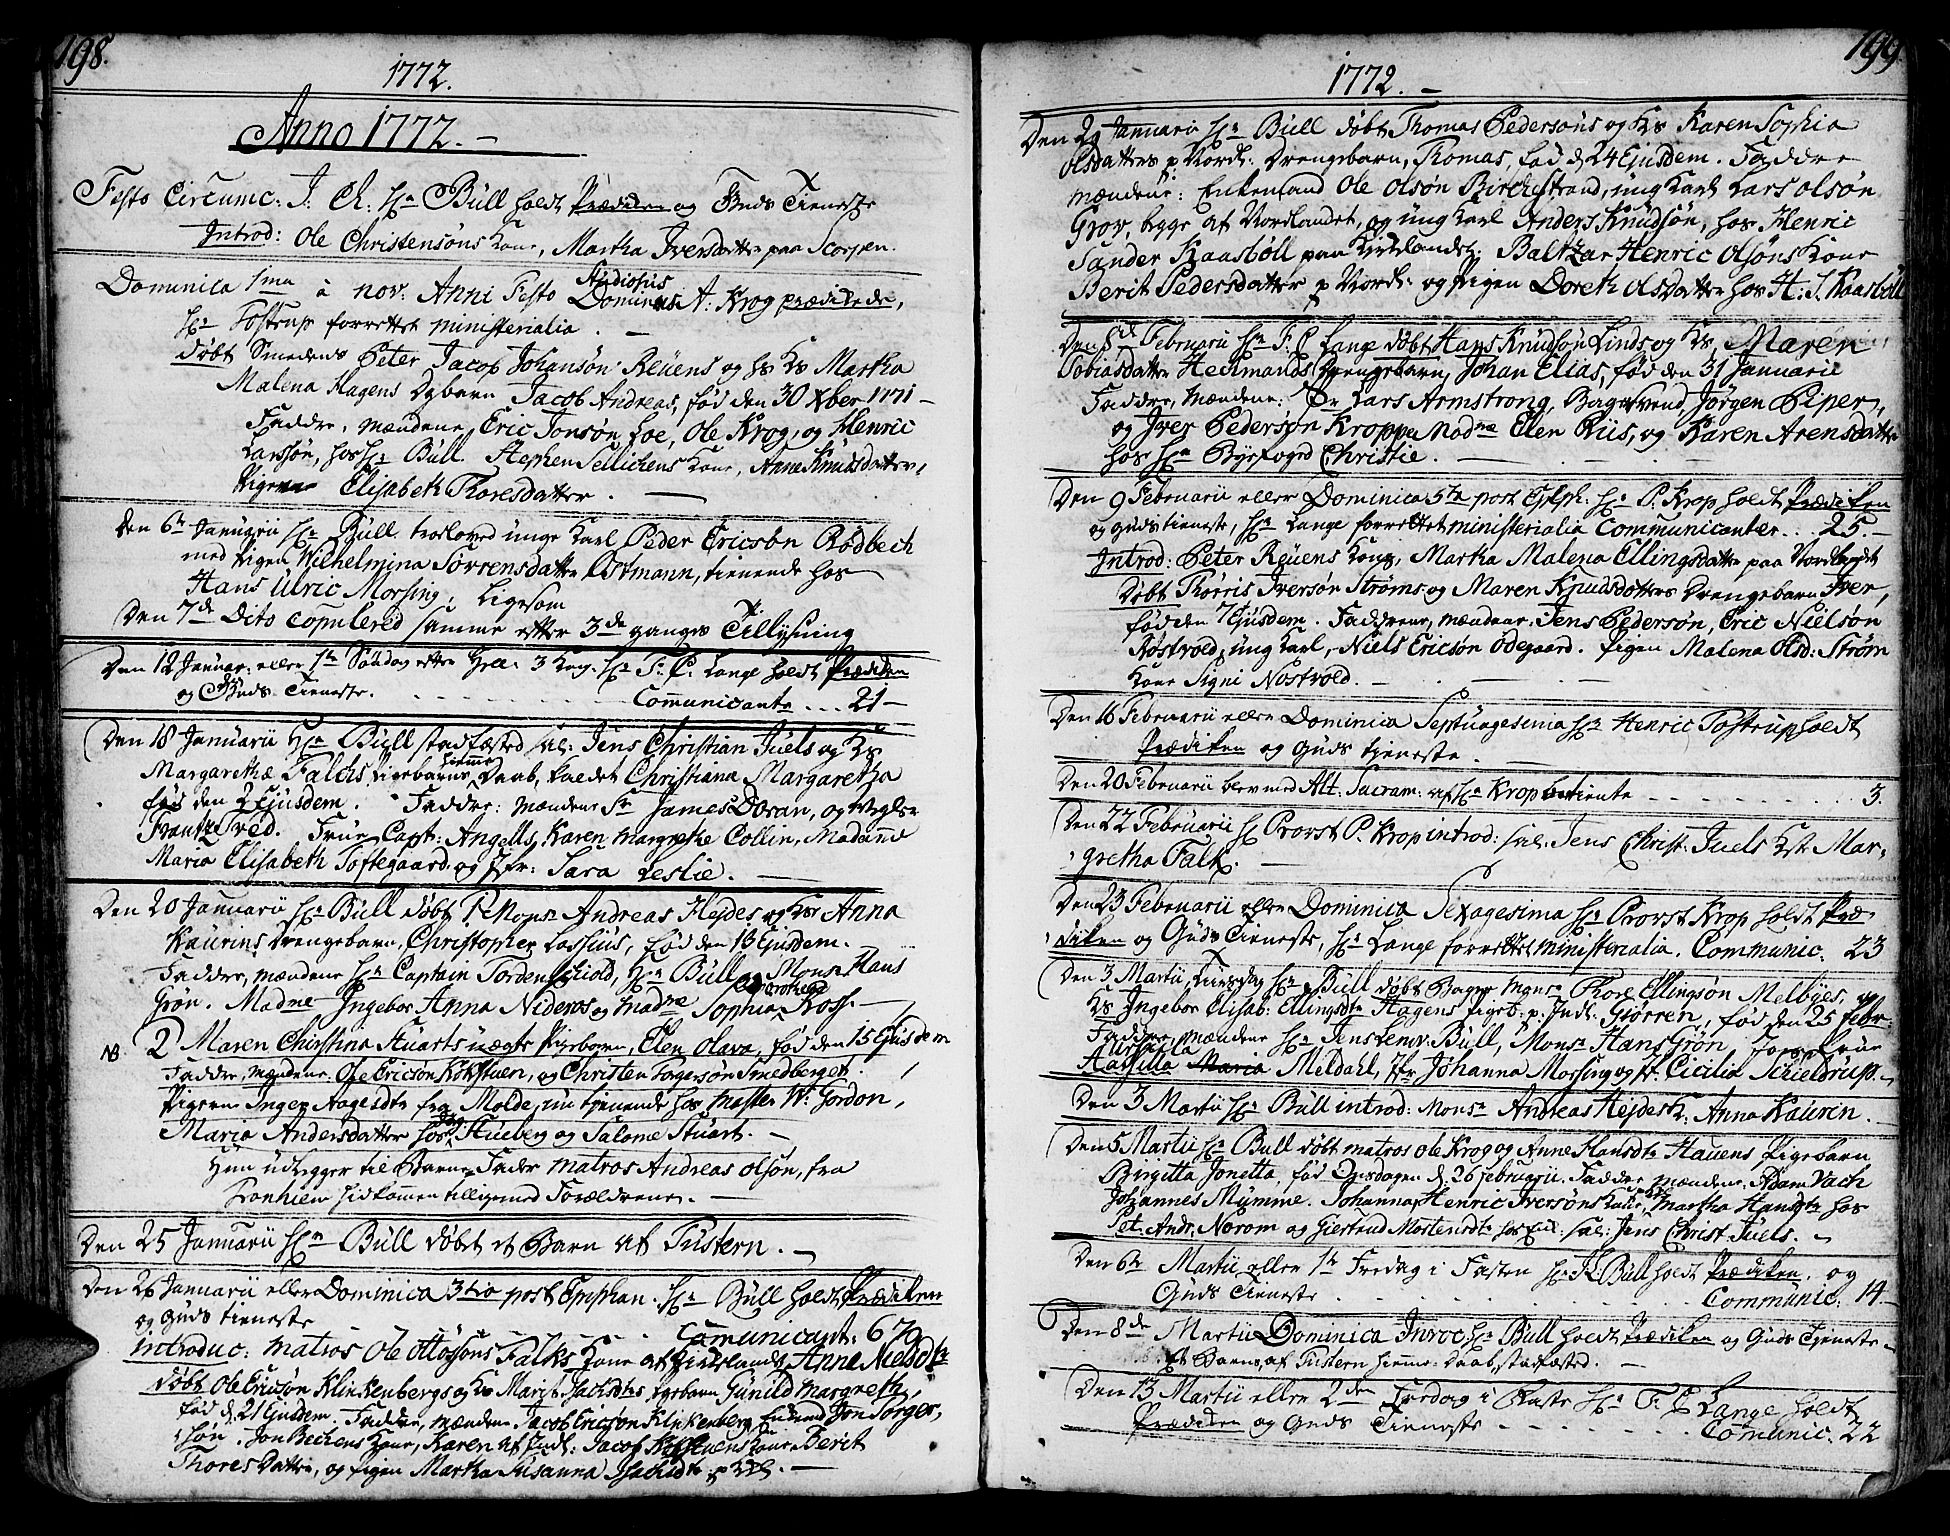 198.
1772.
Anno 1772. -
Festo Circumc: J. Ch. Hr. Bull holdt Prædiken og Guds Tieneste
Introd: Ole Christensøns Kone, Martha Iversdatter paa Scorpen.
Dominica 1ma à nov: Anni Festo Studiosus
Domin: A: Krog prædikede,
Hr. Tostrup forrettet ministerialia. -
døbt Smedens Peter Jacop Johansøn Reuens og hs Ks Martha
Malena Hagens Dgbarn Jacob Andreas, fød den 30 Xber 1771 -
Faddre, mændene Eric Jonsøn Loe, Ole Krog, og Henric
Larssøn, hos Hr. Bull. Stephen Sellichens Kone, Anne Knudsdatter,
Pigen Elisabeth Thoresdatter. -
Den 6te Januarii Hr. Bull troloved unge Karl Peder Ericsøn Rødbech
med Pigen Wilhelmina Sørrensdatter Østmann, tienende hos
Hans Ulric Morsing. Ligesom
Den 7de Dito copulered samme efter 3de ganges Tillysning
Den 12 Januar: eller 1te Søndag efter Hell: 3 Kong. Hr. F: C. Lange holdt Prædiken
og Guds Tieneste. Communicanter ... 21 -
Den 18 Januarii Hr. Bull stadfæsted sal: Jens Christian Juels og Ks
Margarethæ Falchs Pigebarns hiemme Daab, kaldet Christiana Margaretha
fød den 2 Ejusdem. Faddre: mændene Sr. James Doran, og
Frantz Tved. Frue Capt: Angells, Karen Margrethe Collin, Madamme
Maria Elisabeth Toftegaard og Jfr: Sara Leslie. -
Den 20 Januarii Hr. Bull døbt 1. Monsr Andreas Hejdes og Ks Anna
Kaurins Drengebarn, Christopher Lossius, fød den 13 Ejusdem.
Faddre, mændene Hr. Captain Tordenschiold, Hr. Bull og Monsr Hans
Grøn. Madme Ingebor Anna Nideros og Madme Sophia Ross. -
NB 2 Maren Christina Stuarts uægte Pigebarn, Elen Olava, fød den 15 Ejusdem
Faddre, mændene: Ole Ericsøn Kokstuen, og Christen Torgersøn Smedberget.
Pigerne Inger Aagesdtr fra Molde, nu tjenende hos Master Wm: Gordon,
Maria Andersdatter hos Stueberg og Salome Stuart. -
Hun udlegger til Barne Fader matros Andreas Olsøn, fra
Tronhiem hidkommen tilligemed Forældrene. -
Den 25 Januarii Hr. Bull døbt et Barn af Tustern. -
Den 26 Januarii eller Dominica 3tia post Epiphan. Hr. Bull holdt Prædiken
og Guds tieneste Communicant: 67
introduc: matros Ole Ottosøns Falks Kone af Kirkelandet Anna Nielsdtr
døbt Ole Ericsøn Klinkenbergs og Ks Marit Isachsdtrs Pgebarn Gunild Margreth,
fød d. 21 Ejusdem. Faddre, mændene Jacob Ericsøn Klinkenberg, Jon Torger-
søn. Jon Bechens Kone, Karen af Indl: Jacob Kokstuens Kone Berit
Thores Datter, og Pigen Martha Susanna Isachsdtr p. Kirkl. -
199.
1772. -
Den 29 Januarii Hr. Bull døbt Thomas Pedersøns og Ks Karen Sophia
Olsdatters p: Nordl: Drengebarn, Thomas, fød d. 24 Ejusdem. Faddre
mændene: Enkemand Ole Olsøn Birchestrand, ung Karl Lars Olsøn
Grov, begge af Nordlandet, og ung Karl Anders Knudsøn, hos Henric
Sander Kaasbøll paa Kirkelandet. Baltzar Henric Olsøns Kone
Berit Pedersdatter p Nordl: og Pigen Doreth Olsdatter hos H: S. Kaasbøll
Den 8de Februarii Hr. F: C. Lange døbt Hans Knudsøn Linds og Ks, Maren
Tobiasdatter Heckmands Drengebarn, Johan Elias, fød den 31 Januarii
Faddre, mændene: Sr Lars Armstrong, Bagersvend Jørgen Piper,
og Iver Pedersøn Kroppa Madme Elen Riis, og Karen Arensdatter
hos Hr. Byefoged Christie. -
Den 9 Februarii eller Dominica 5ta post Epiph: Hr. P. Krop holdt Prædiken
og Guds tieneste, Hr. Lange forrettet ministerialia Communicanter .. 25. -
Introd: Peter Reuens Kone, Martha Malena Ellingsdatter paa Nordlandet
Døbt Thørris Iversøn Strøms og Maren Knudsdatters Drengebarn Iver,
fød den 7 Ejusdem. Faddrene, mændene: Jens Pedersøn, Eric Nielsøn
Røstvold, ung Karl, Niels Ericsøn Ødegaard. Pigen Malena Olsd: Strøm
Kone Signi Nostvold. -
Den 16 Februarii eller Dominica Septuagesima Hr. Henric Tostrup holdt
Prædiken og Guds tjeneste.
Den 20 Februarii blev med Alt: Sacram: af Hr. Krop betiente 3.
Den 22 Februarii Hr. Provst P. Krop introd: sal: Jens Christ: Juels Kst Mar-
gretha Falk. -
Den 23 Februarii eller Dominica Sexagesima Hr. Provst Krop holdt Præ-
diken og Guds Tieneste, Hr. Lange forrettet ministerialia. Communic. 23
Den 3 Martii, Tirsdag Hr. Bull døbt Bager Monsr Thore Ellingsøn Melbyes, og
Ks Ingebor Elisab: Ellingsdtr Hagens Pigeb: p: Indl: Giørren, fød den 25 Febr:
Faddre, mændene Hr. Jens Lemv: Bull, Monsr Hans Grøn, Frue
Aursilla Maria Meldahl, Jfr Johanna Morsing og Jfr: Cicilia Schieldrup. -
Den 3 Martii Hr. Bull introd: Monsr Andreas Hejdes K: Anna Kaurin.
Den 5 Martii Hr. Bull døbt matros Ole Krog og Anne Hansdtr Hauens Pigebarn
Birgitta Jonetta, fød Onsdagen d. 26 Februarii. Faddre mændene: Adam Vach
Johannes Mumme. Johanna Henric Iversøns Kone, Martha Hansdtr hos
Pet. Andr. Norom og Giertrud Mortensdtr hos Enk. sal: Jens Christ Juels. -
Den 6te Martii eller 1te Fredag i Fasten Hr. J. Bull holdt Prædiken, og
Guds Tieneste Communic: 14 -
Den 8de Martii Dominica Invoc: Hr. Bull holdt Prædiken og Guds Tjeneste -
Et Barns af Tustern hiemme-Daab, stadfæsted. -
Den 13 Martii eller 2den Fredag i Faste Hr. F: C Lange holdt
Prædiken og Guds Tieneste Comunic: 22